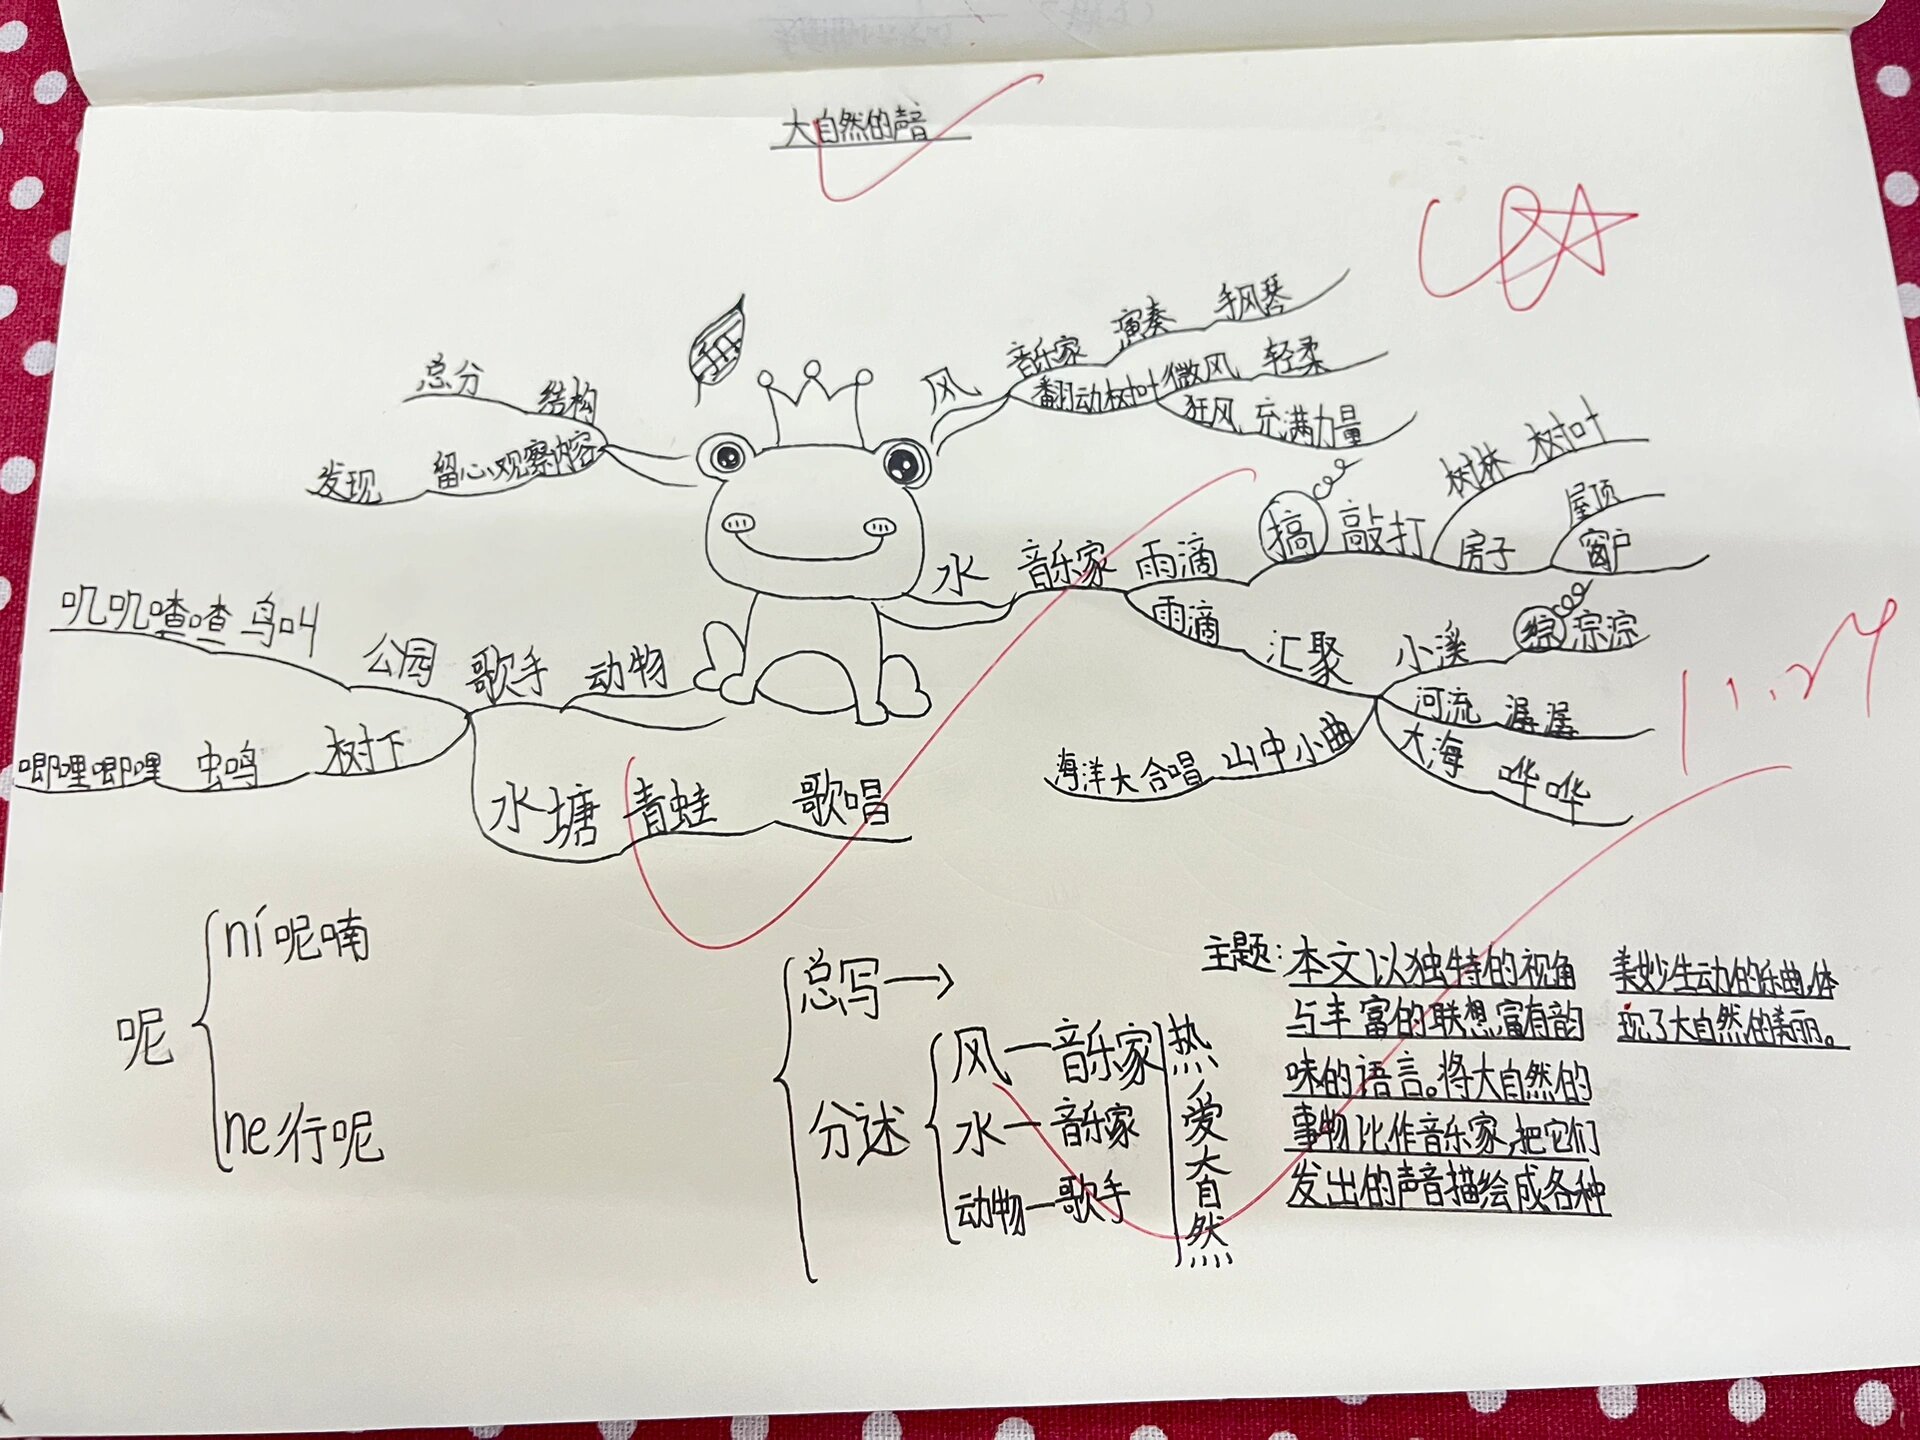 大自然的声音
总分 结构
发现 留心观察内容
风 音乐家 演奏 手风琴
翻动树叶 微风 轻柔
狂风 充满力量
水 音乐家 雨滴 敲打 树林 树叶
房子 屋顶
窗户
雨滴 汇聚 小溪 淙淙
河流 潺潺
大海 哗哗
海洋大合唱 山中小曲
叽叽喳喳 鸟叫 公园 歌手 动物
唧哩唧哩 虫鸣 树下
水塘 青蛙 歌唱
呢
ní 呢喃
ne 行呢
总写→
分述
风—音乐家
水—音乐家
动物—歌手
热爱大自然
主题：本文以独特的视角
与丰富的联想,富有韵
味的语言。将大自然的
事物比作音乐家,把它们
发出的声音描绘成各种
美妙生动的乐曲,体
现了大自然的美丽。
11.24